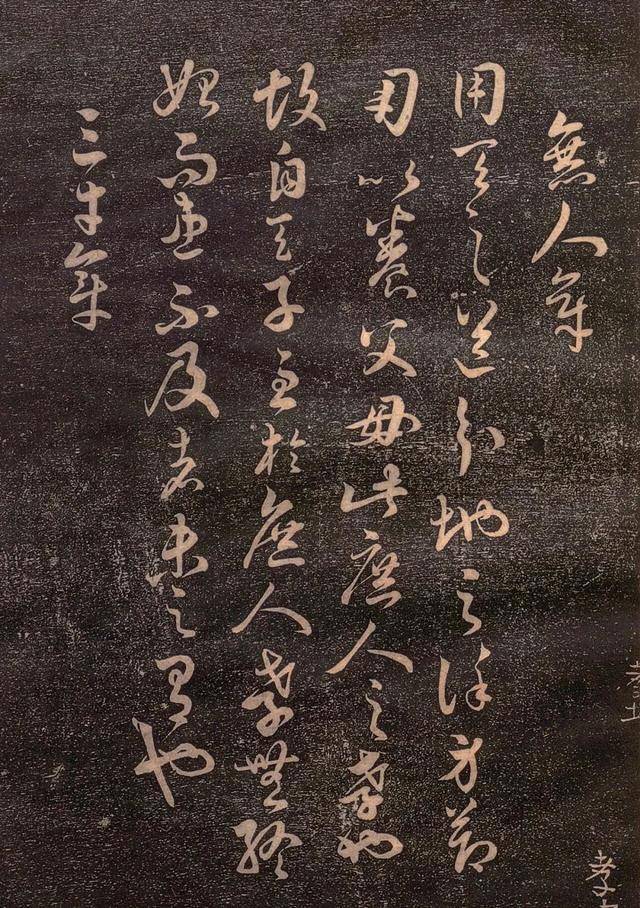 庶人章
用天之道分地之謹身節
用以養父母此庶人之孝也
故自天子至於庶人孝無終
始而患不及者未之有也
三才章